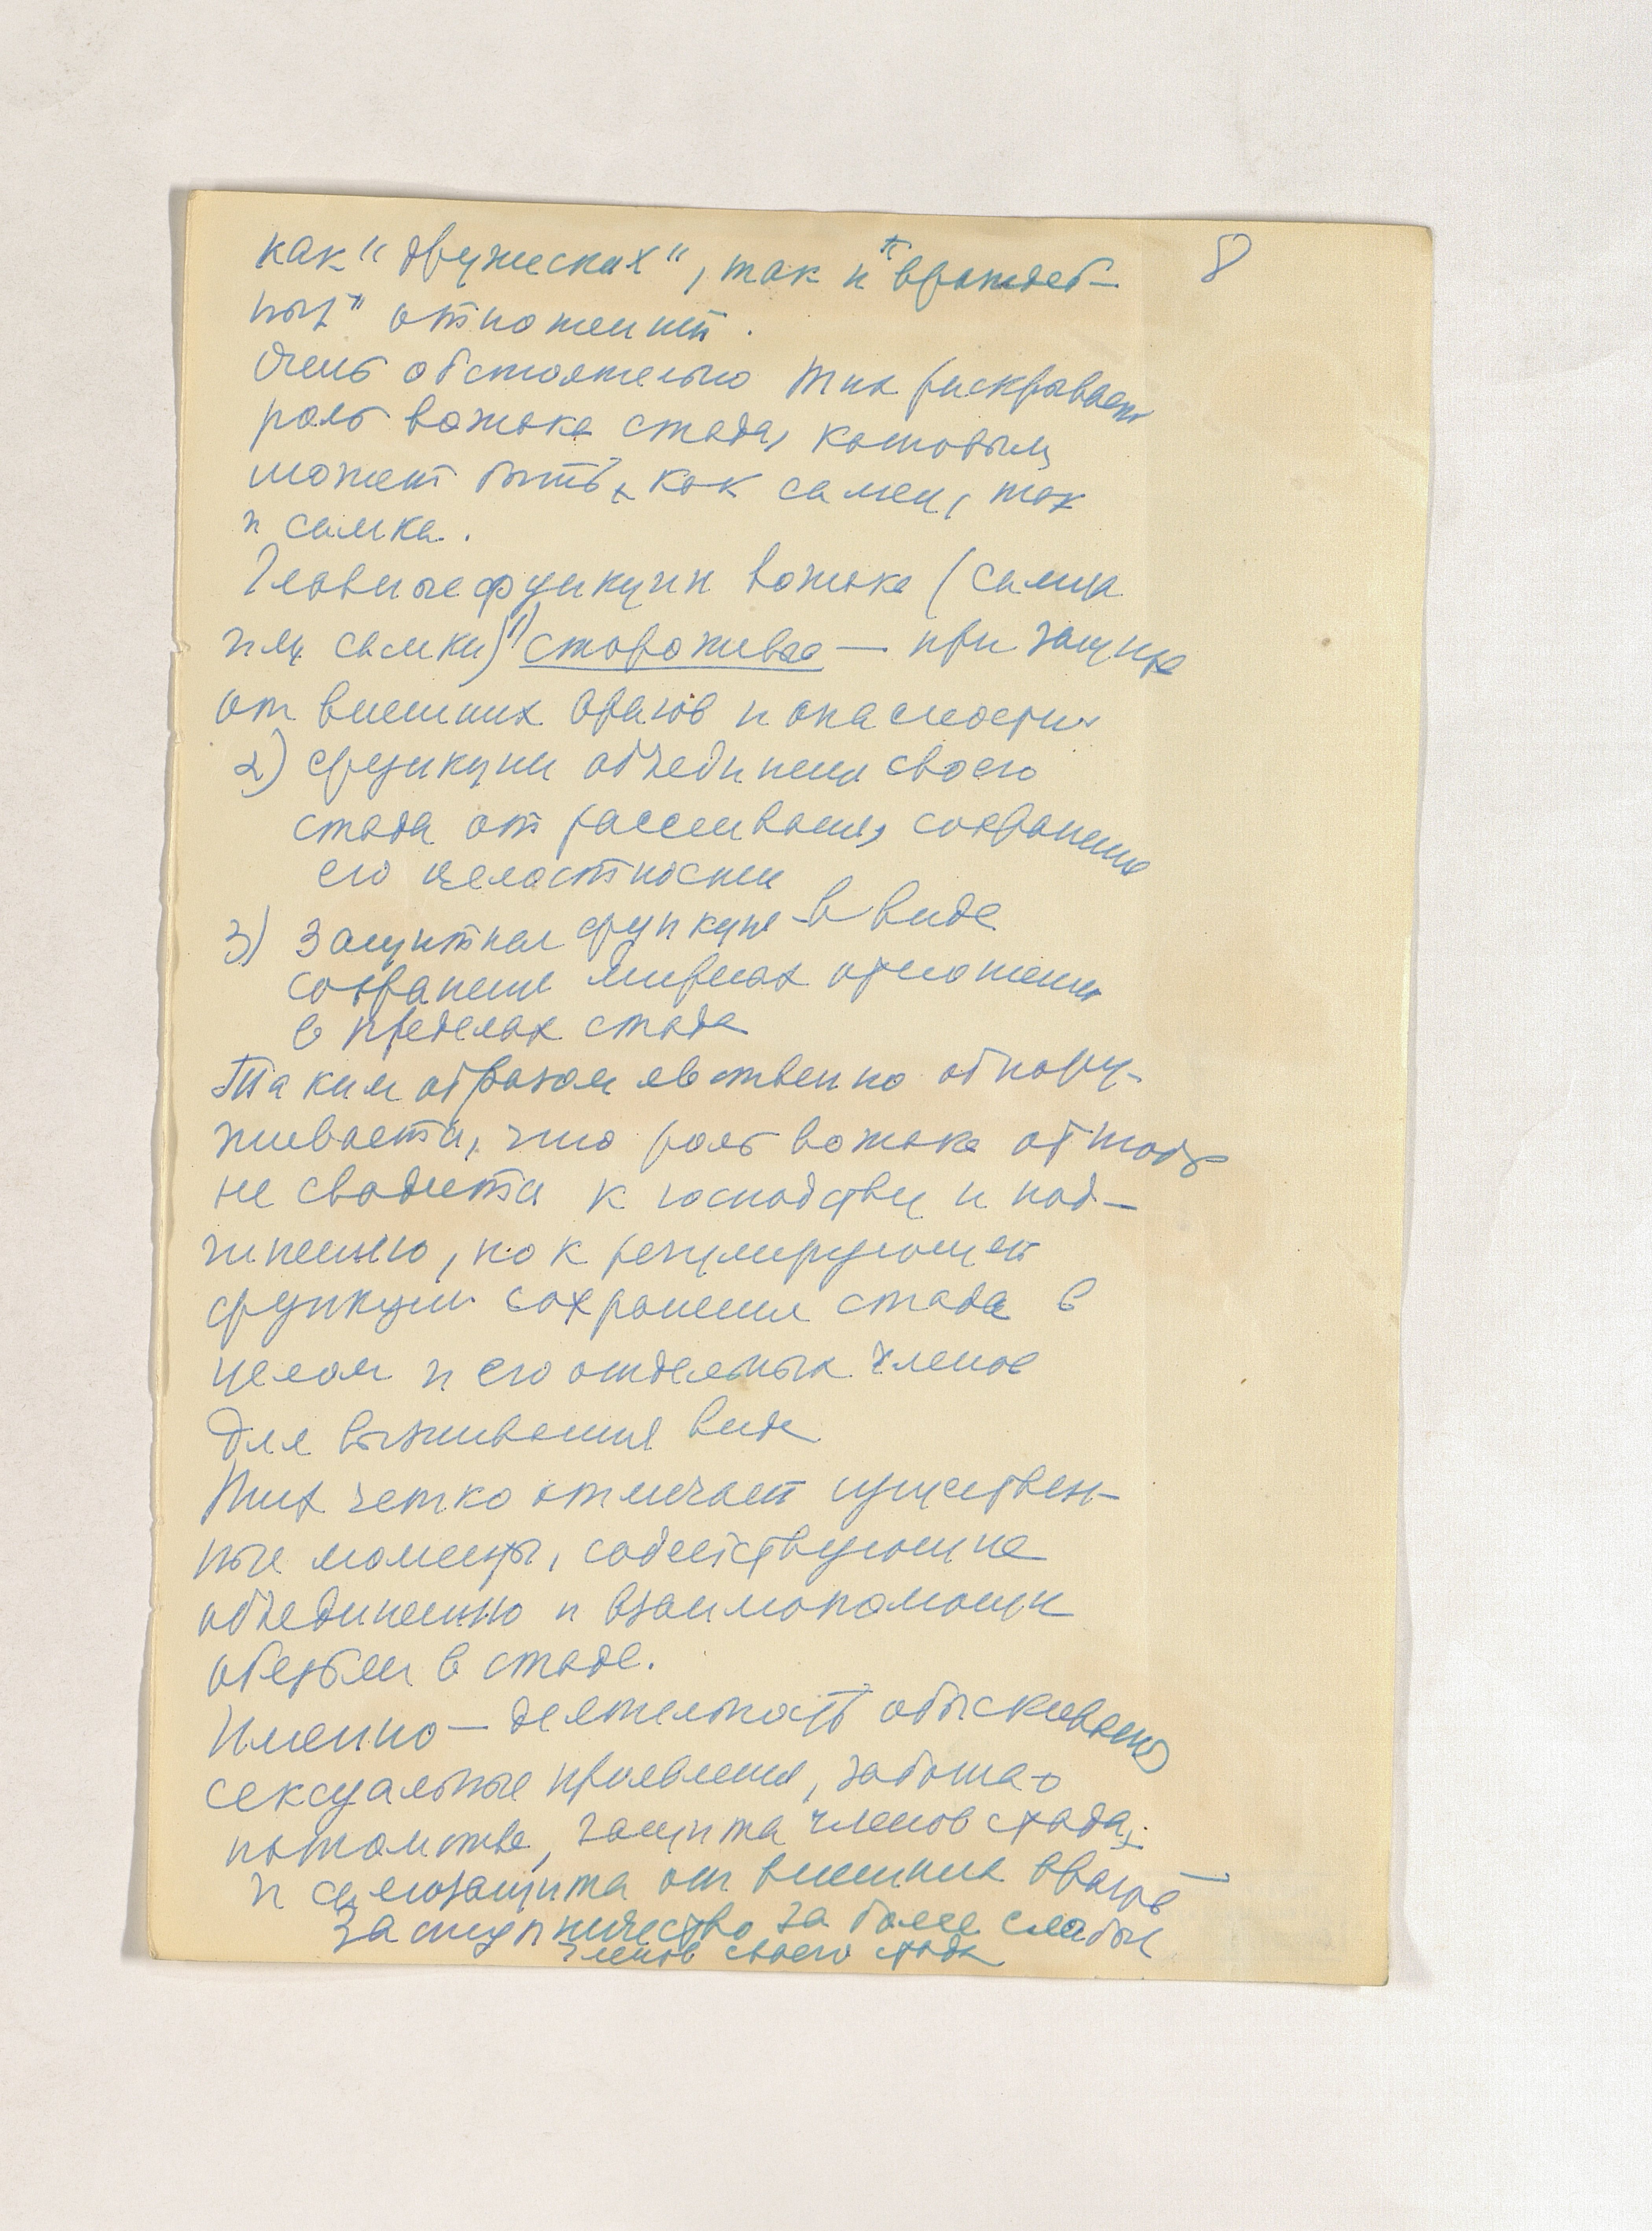 8
как "дружеских", так и "враждеб-
ных" отношений.
Очень обстоятельно Тих раскрывает
роль вожака стада, которым
может быть, как самец, так
и самка.
Главные функции вожака (самца
или самки) 1) сторожевая — при защите
от внешних врагов и опасности
2) функции объединения своего
стада от рассеивания, сохранение
его целостности
3) Защитная функция в виде
сохранения мирных отношений
в пределах стада
Таким образом явственно обнару-
живается, что роль вожака отнюдь
не сводится к господству и под-
чинению, но к регулирующей
функции сохранения стада в
целом и его отдельных членов
для выживания вида
Тих четко отмечает существен-
ные моменты, содействующие
объединению и взаимопомощи
обезьян в стаде.
Именно — деятельность обыскивания
сексуальные проявления, забота о
потомстве, защита членов стада,
и самозащита от внешних врагов
Заступничество за более слабых
членов своего стада